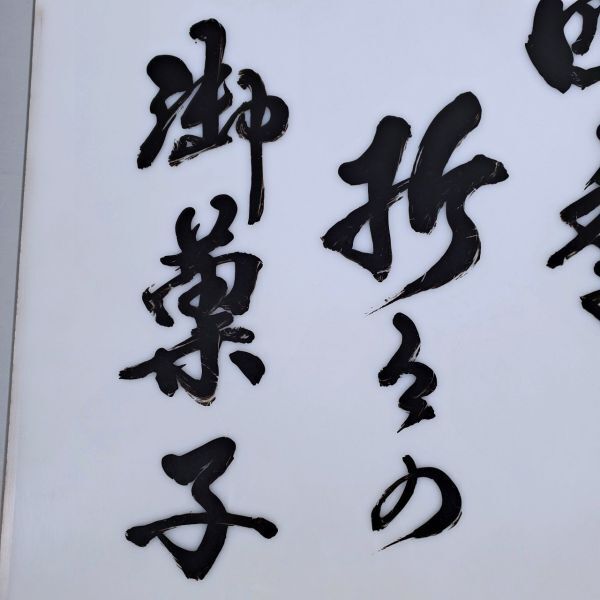 折々の
御菓子